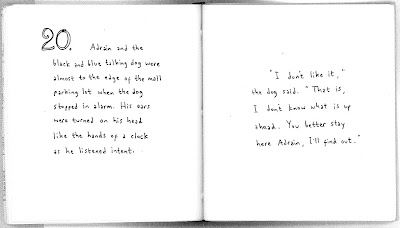 20. Adrain and the
black and blue talking dog were
almost to the edge of the mall
parking lot when the dog
stopped in alarm. His ears
were turned on his head
like the hands of a clock
as he listened intent.
"I don't like it,"
the dog said. "That is,
I don't know what is up
ahead. You better stay
here Adrain, I'll find out."